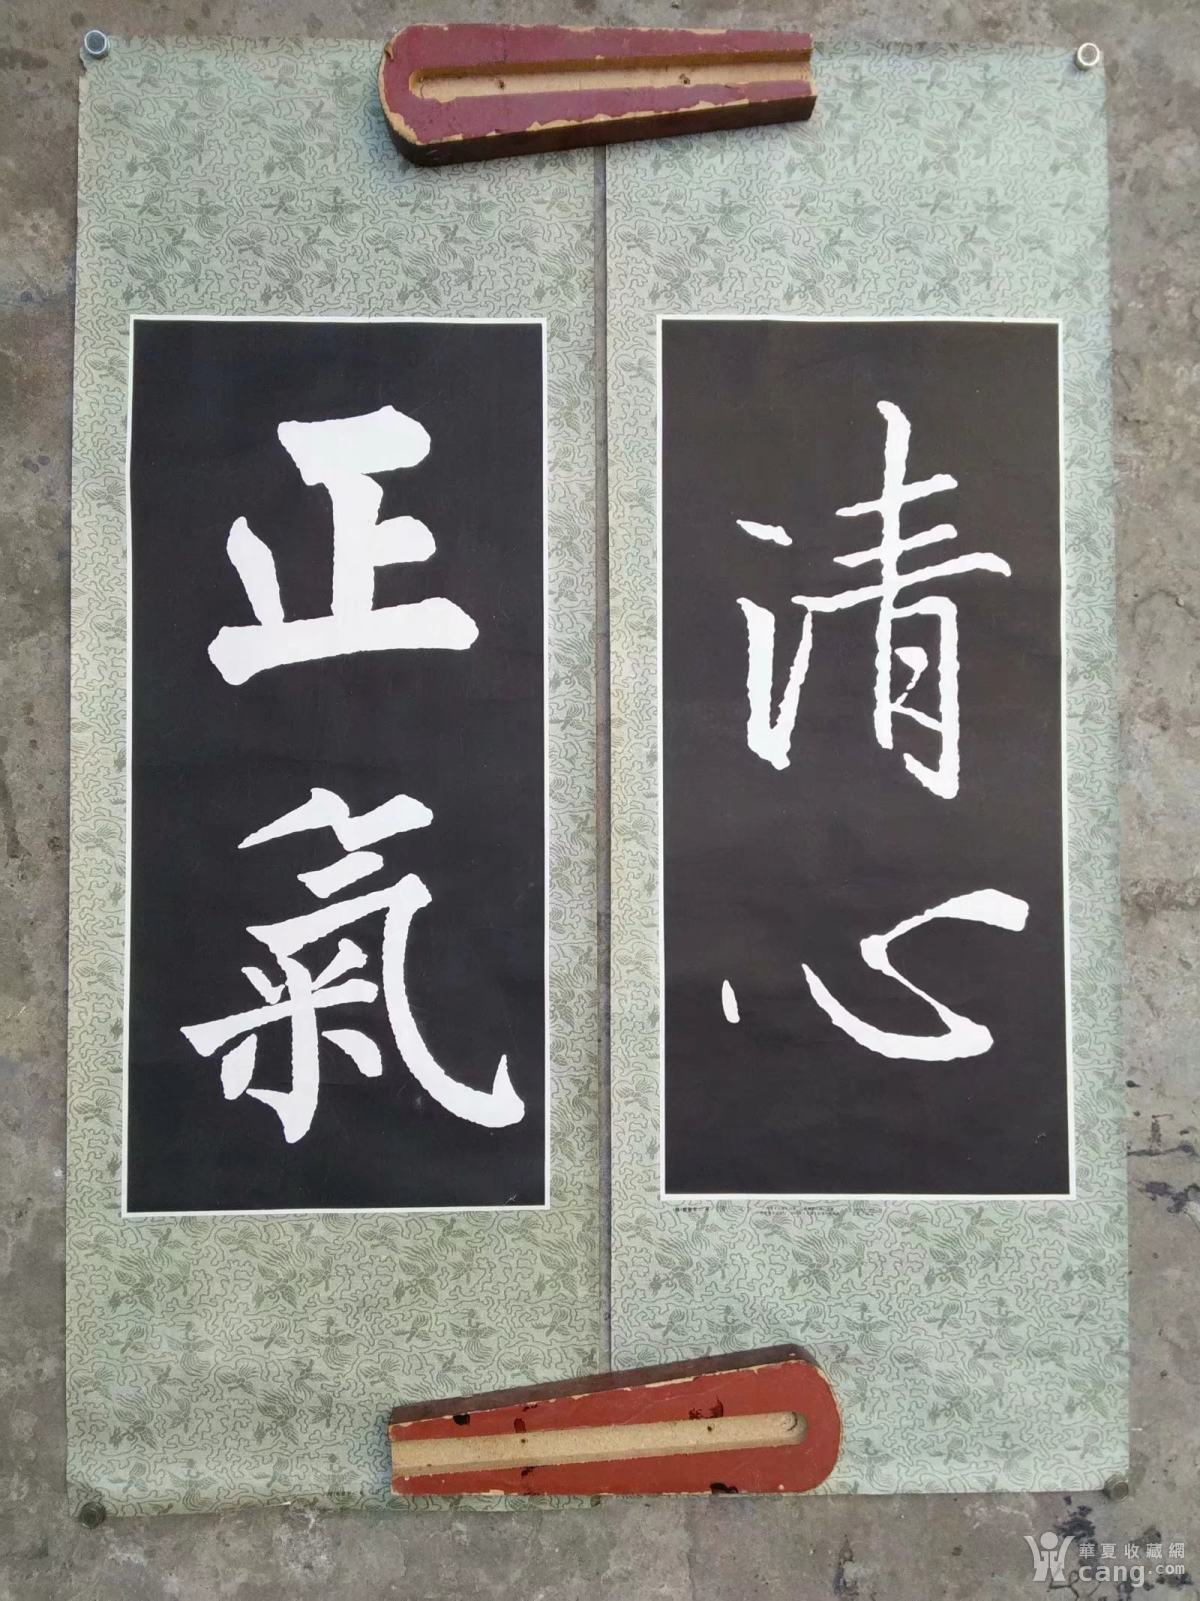 清心
正氣
華夏收藏網
cang.com